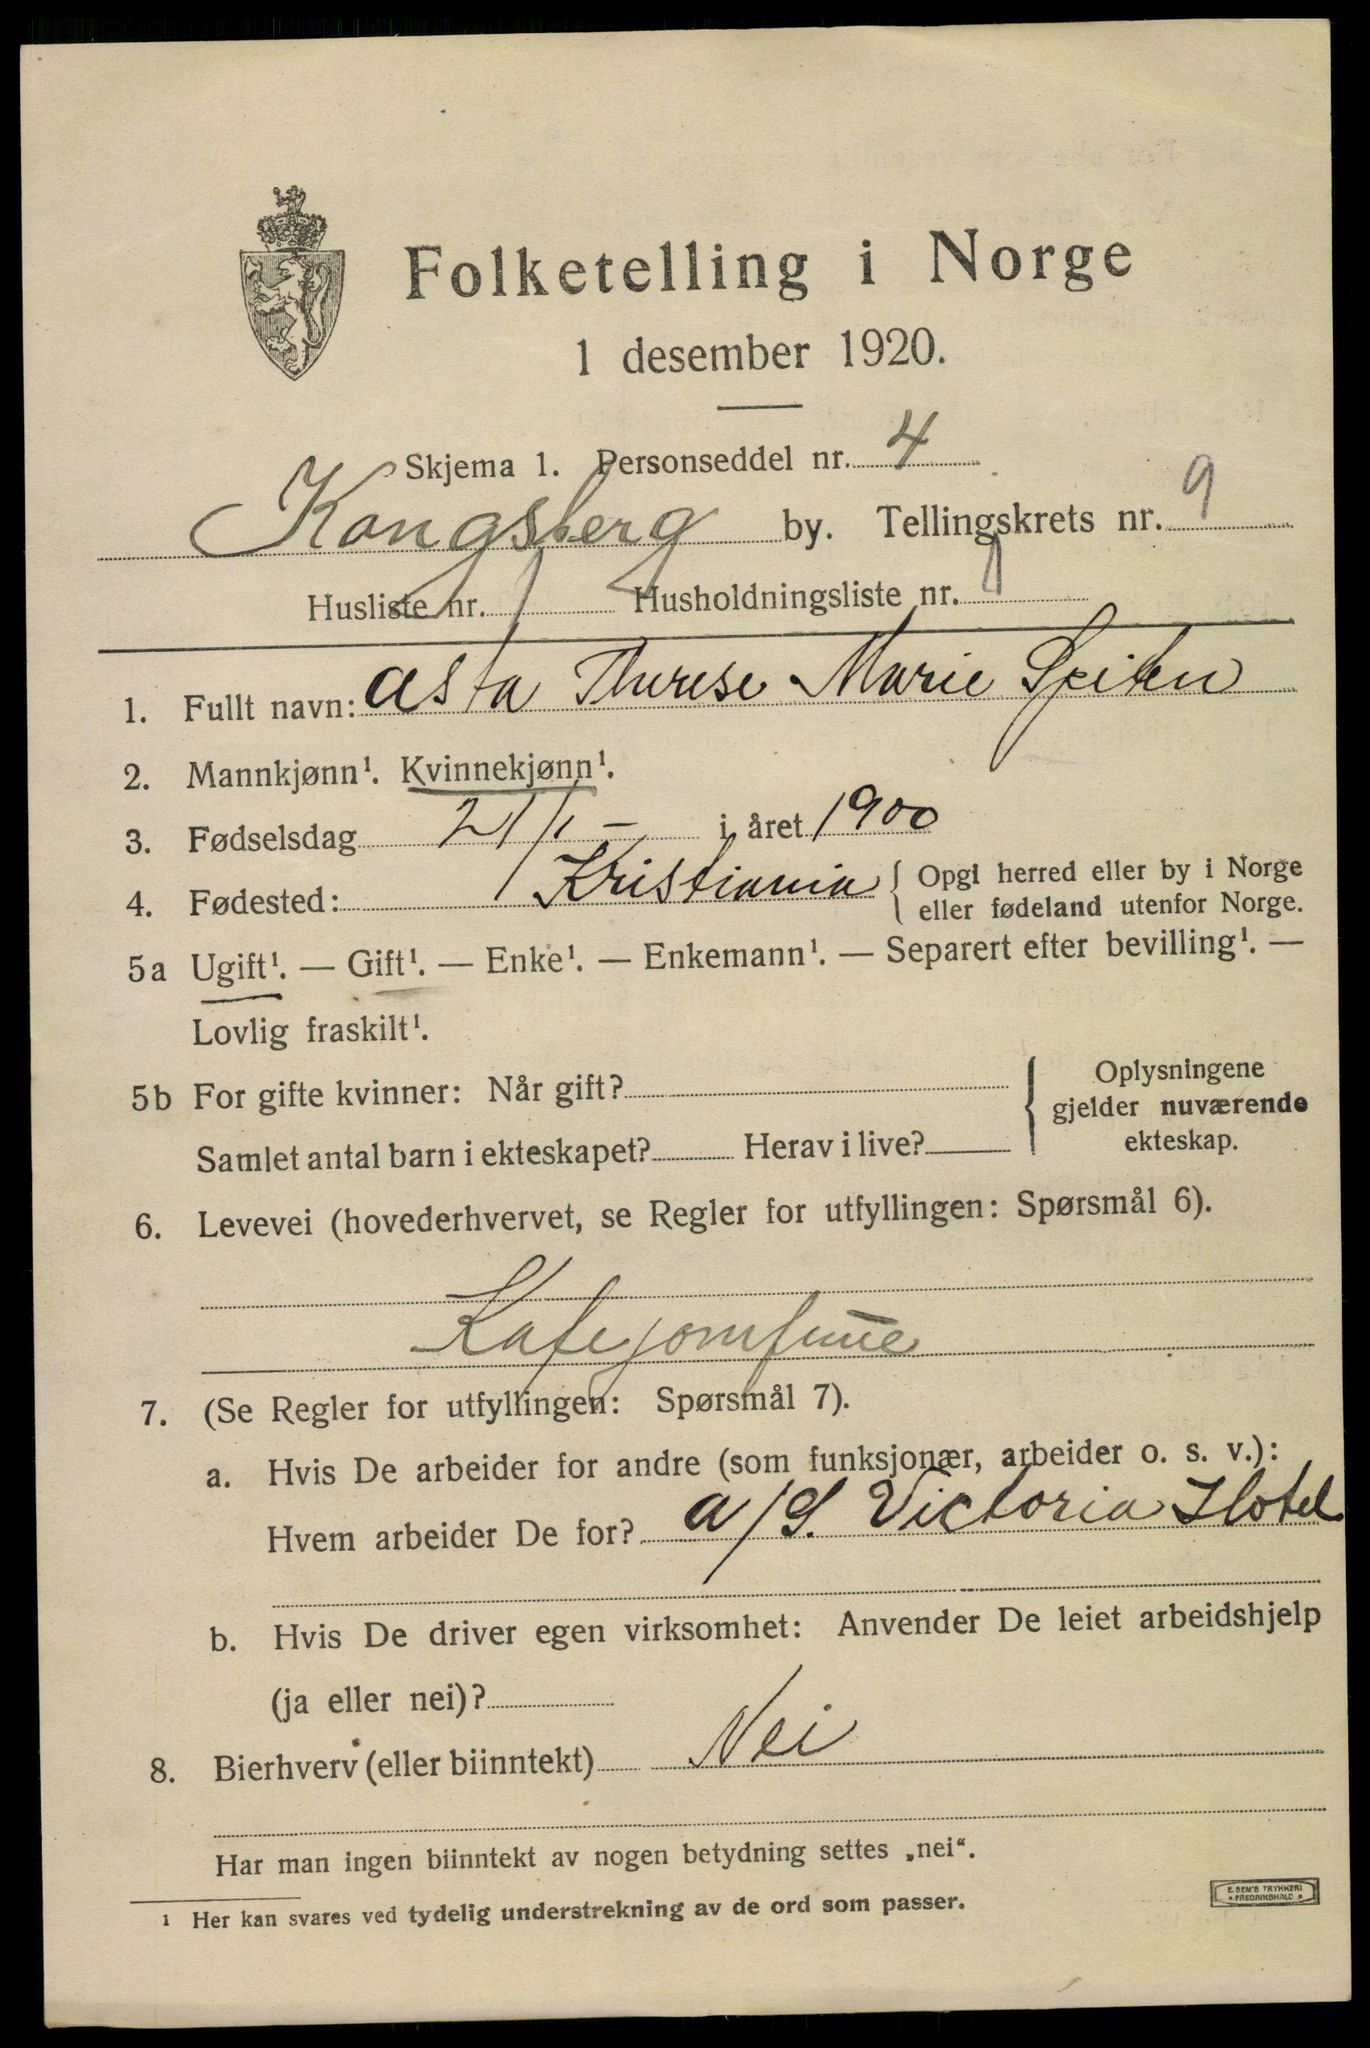 Folketelling i Norge
1 desember 1920.
Skjema 1. Personseddel nr. 4
Kongsberg by. Tellingskrets nr. 9
Husliste nr. 1 Husholdningsliste nr. 1
1. Fullt navn: Asta Therese Marie Spiten
2. Mannkjønn¹. Kvinnekjønn¹.
3. Fødselsdag 21/1 - i året 1900
4. Fødested: Kristiania { Opgi herred eller by i Norge
eller fødeland utenfor Norge.
5a Ugift¹. — Gift¹. — Enke¹. — Enkemann¹. — Separert efter bevilling¹. —
Lovlig fraskilt¹.
5b For gifte kvinner: Når gift? { Oplysningene
gjelder nuværende
Samlet antal barn i ekteskapet? Herav i live? ekteskap.
6. Levevei (hovederhvervet, se Regler for utfyllingen: Spørsmål 6).
Kafejomfrue
7. (Se Regler for utfyllingen: Spørsmål 7).
a. Hvis De arbeider for andre (som funksjonær, arbeider o. s. v.):
Hvem arbeider De for? A/S. Victoria Hotel
b. Hvis De driver egen virksomhet: Anvender De leiet arbeidshjelp
(ja eller nei)?
8. Bierhverv (eller biinntekt) Nei
Har man ingen biinntekt av nogen betydning settes „nei“.
¹ Her kan svares ved tydelig understrekning av de ord som passer.
E. SEM'S TRYKKERI
FREDRIKSHALD